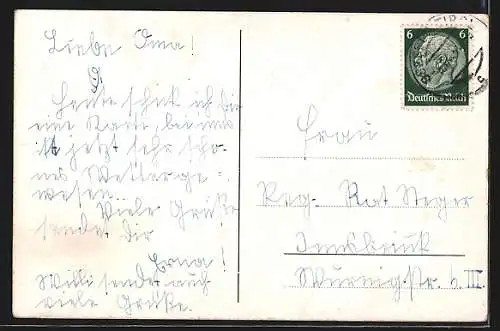 Liebe Oma!
Heute schick ich dir
eine Karte, bei uns
ist jetzt sehr schö-
nes Wetter ge-
wesen.
Viele Grüße
sendet dir
Erna!
Willi sendet auch
viele Grüße.
6 6
Deutsches Reich
Frau
Reg. Rat Steger
Innsbruck
III